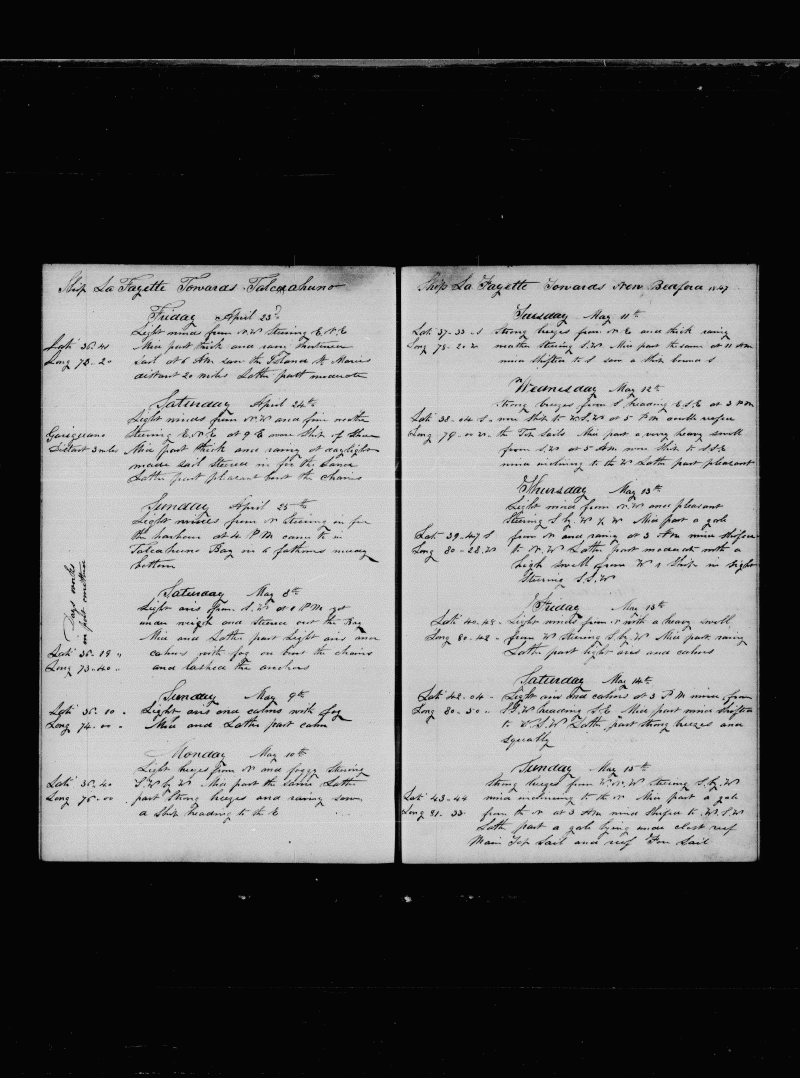 Ship La Fayette Towards Talcahuno
Friday April 23d
Light winds from N.W Steering E.N.E
Lati 36.41 Mid part thick and rainy
Long 73.20 Sail at 6 AM saw the Island St Maries
distant 20 miles Latter part moderate
Saturday April 24th
Light winds from N.W and fine weather
Steering E.N.E at 9 E wore Ship of Shore
Distant 3 miles Mid part thick and rainy at daylight
made sail Steered in for the Land
Latter part pleasant bent the chains
Sunday April 25th
Light winds from N Steering in for
the harbour at 4 PM came to in
Talcahuno Bay in 6 fathoms muddy
bottom
Days works
in port omitted
Saturday May 8th
Light airs from S.W at 1 PM got
under weigh and steered out the Bay
Mid and Latter part Light airs and
Lati 36.18 " calms with fog on bent the chains
Long 73.40 " and lashed the anchors
Sunday May 9th
Lati 36.10 " Light airs and calms with fog
Long 74.00 " Mid and Latter part calm
Monday May 10th
Light breezes from N and foggy Steering
Lati 36.40 S.W by W Mid part the Same Latter
Long 76.00 part Strong breezes and rainy saw
a Ship heading to the E
Ship La Fayette Towards New Bedford 1847
Tuesday May 11th
Lati 37.33 S Strong breezes from N.E and thick rainy
Long 78.20 W weather steering S.W Mid part the same at 11 AM
wind shifted to S saw a Ship bound S
Wednesday May 12th
Strong breezes from S heading E.S.E at 3 PM
Lati 38.04 S wore Ship to W.S.W at 5 PM double reefed
Long 79.00 W the Top Sails Mid part a very heavy swell
from S.W at 5 AM wore Ship to S.S.E
wind inclining to the W Latter part pleasant
Thursday May 13th
Light wind from N.W and pleasant
Steering S by W ½ W Mid part a gale
Lati 39.47 S from N and rainy at 3 AM wind shifted
Long 80.28 W to N.W Latter part moderate with a
high swell from W a Ship in sight
Steering S.S.W
Friday May 13th
Lati 40.48 Light winds from N with a heavy swell
Long 80.42 from W Steering S by W Mid part rainy
Latter part light airs and calms
Saturday May 14th
Lati 42.04 Light airs and calms at 3 PM wind from
Long 80.50 S.W heading S.E Mid part wind shifted
to W.S.W Latter part strong breezes and
Squally
Sunday May 15th
Strong breezes from W.N.W steering S.by.W
Lati 43.44 wind inclining to the N Mid part a gale
Long 81.33 from the N at 3 AM wind shifted to W.S.W
Latter part a gale lying under close reef
Main Top Sail and reef Fore Sail